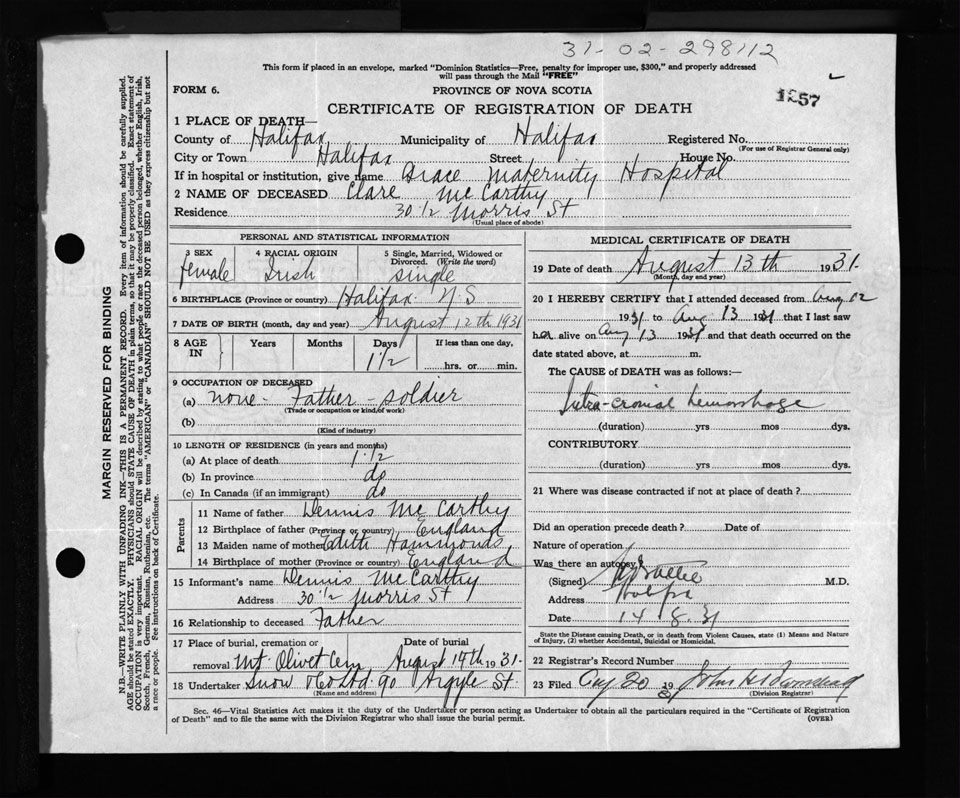 31-02-298112
This form if placed in an envelope, marked "Dominion Statistics—Free, penalty for improper use, $300," and properly addressed
will pass through the Mail "FREE"
FORM 6.
PROVINCE OF NOVA SCOTIA
1257
CERTIFICATE OF REGISTRATION OF DEATH
1 PLACE OF DEATH—
County of Halifax Municipality of Halifax Registered No.
(For use of Registrar General only)
City or Town Halifax Street House No.
If in hospital or institution, give name Grace Maternity Hospital
2 NAME OF DECEASED Clare McCarthy
Residence 30 1/2 Morris St
(Usual place of abode)
PERSONAL AND STATISTICAL INFORMATION
3 SEX 4 RACIAL ORIGIN 5 Single, Married, Widowed or Divorced. (Write the word)
female Irish single
6 BIRTHPLACE (Province or country) Halifax N S
7 DATE OF BIRTH (month, day and year) August 12th 1931
8 AGE IN Years Months Days If less than one day,
1 1/2 hrs. or min.
9 OCCUPATION OF DECEASED
(a) none - Father - soldier
(Trade or occupation or kind of work)
(b)
(Kind of industry)
10 LENGTH OF RESIDENCE (in years and months)
(a) At place of death 1 1/2
(b) In province do
(c) In Canada (if an immigrant) do
Parents
11 Name of father Dennis McCarthy
12 Birthplace of father (Province or country) England
13 Maiden name of mother Edith Hammonds
14 Birthplace of mother (Province or country) England
15 Informant's name Dennis McCarthy
Address 30 1/2 Morris St
16 Relationship to deceased Father
17 Place of burial, cremation or Date of burial
removal Mt. Olivet Cem August 14th 1931.
18 Undertaker Snow & Co Ltd. 90 Argyle St
(Name and address)
MEDICAL CERTIFICATE OF DEATH
19 Date of death August 13th 1931.
(Month, day and year)
20 I HEREBY CERTIFY that I attended deceased from Aug 12
1931 to Aug 13 1931 that I last saw
her alive on Aug 13 1931 and that death occurred on the
date stated above, at m.
The CAUSE of DEATH was as follows:—
Intra-cranial hemorrhage
(duration) yrs mos dys.
CONTRIBUTORY
(duration) yrs mos dys.
21 Where was disease contracted if not at place of death?
Did an operation precede death? Date of
Nature of operation
Was there an autopsy?
(Signed) M.D.
Address Halifax
Date 14.8.31
State the Disease causing Death, or in death from Violent Causes, state (1) Means and Nature
of Injury, (2) whether Accidental, Suicidal or Homicidal.
22 Registrar's Record Number
23 Filed Aug 20 19 31 John
(Division Registrar)
Sec. 46—Vital Statistics Act makes it the duty of the Undertaker or person acting as Undertaker to obtain all the particulars required in the "Certificate of Registration
of Death" and to file the same with the Division Registrar who shall issue the burial permit.
(OVER)
MARGIN RESERVED FOR BINDING
N.B.—WRITE PLAINLY WITH UNFADING INK—THIS IS A PERMANENT RECORD. Every item of information should be carefully supplied.
AGE should be stated EXACTLY. PHYSICIANS should STATE CAUSE OF DEATH in plain terms, so that it may be properly classified. Exact statement of
OCCUPATION is very important. RACIAL ORIGIN will be described by stating to what people or race the deceased person belonged, whether English, Irish,
Scotch, French, German, Russian, Ruthenian, etc. The terms "AMERICAN" or "CANADIAN" SHOULD NOT BE USED as they express citizenship but not
a race or people. Fee instructions on back of Certificate.